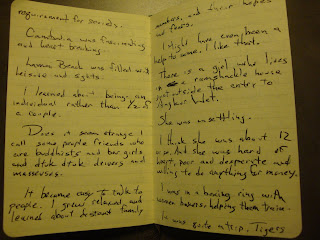 requirement for sounds.
Cambodia was fascinating
and heart breaking.
Lamai Beach was filled with
leisure and sights.
I learned about being an
individual rather than 1/2 of
a couple.
Does it seem strange I
call some people friends who
are buddhists and bar girls
and dtuk dtuk drivers and
masseuses.
It became easy to talk to
people. I grew relaxed and
learned about distant family
members, and their hopes
and fears.
I might have even been a
help to some. I like that.
There is a girl who lives
in a ramshackle house
just outside the entry to
Angkor Wat.
She was unsettling.
I think she was about 12
or so. And she was hard of
heart, poor and desperate and
willing to do anything for money.
I was in a boxing ring with
women boxers, helping them train
It was quite a trip. Tigers